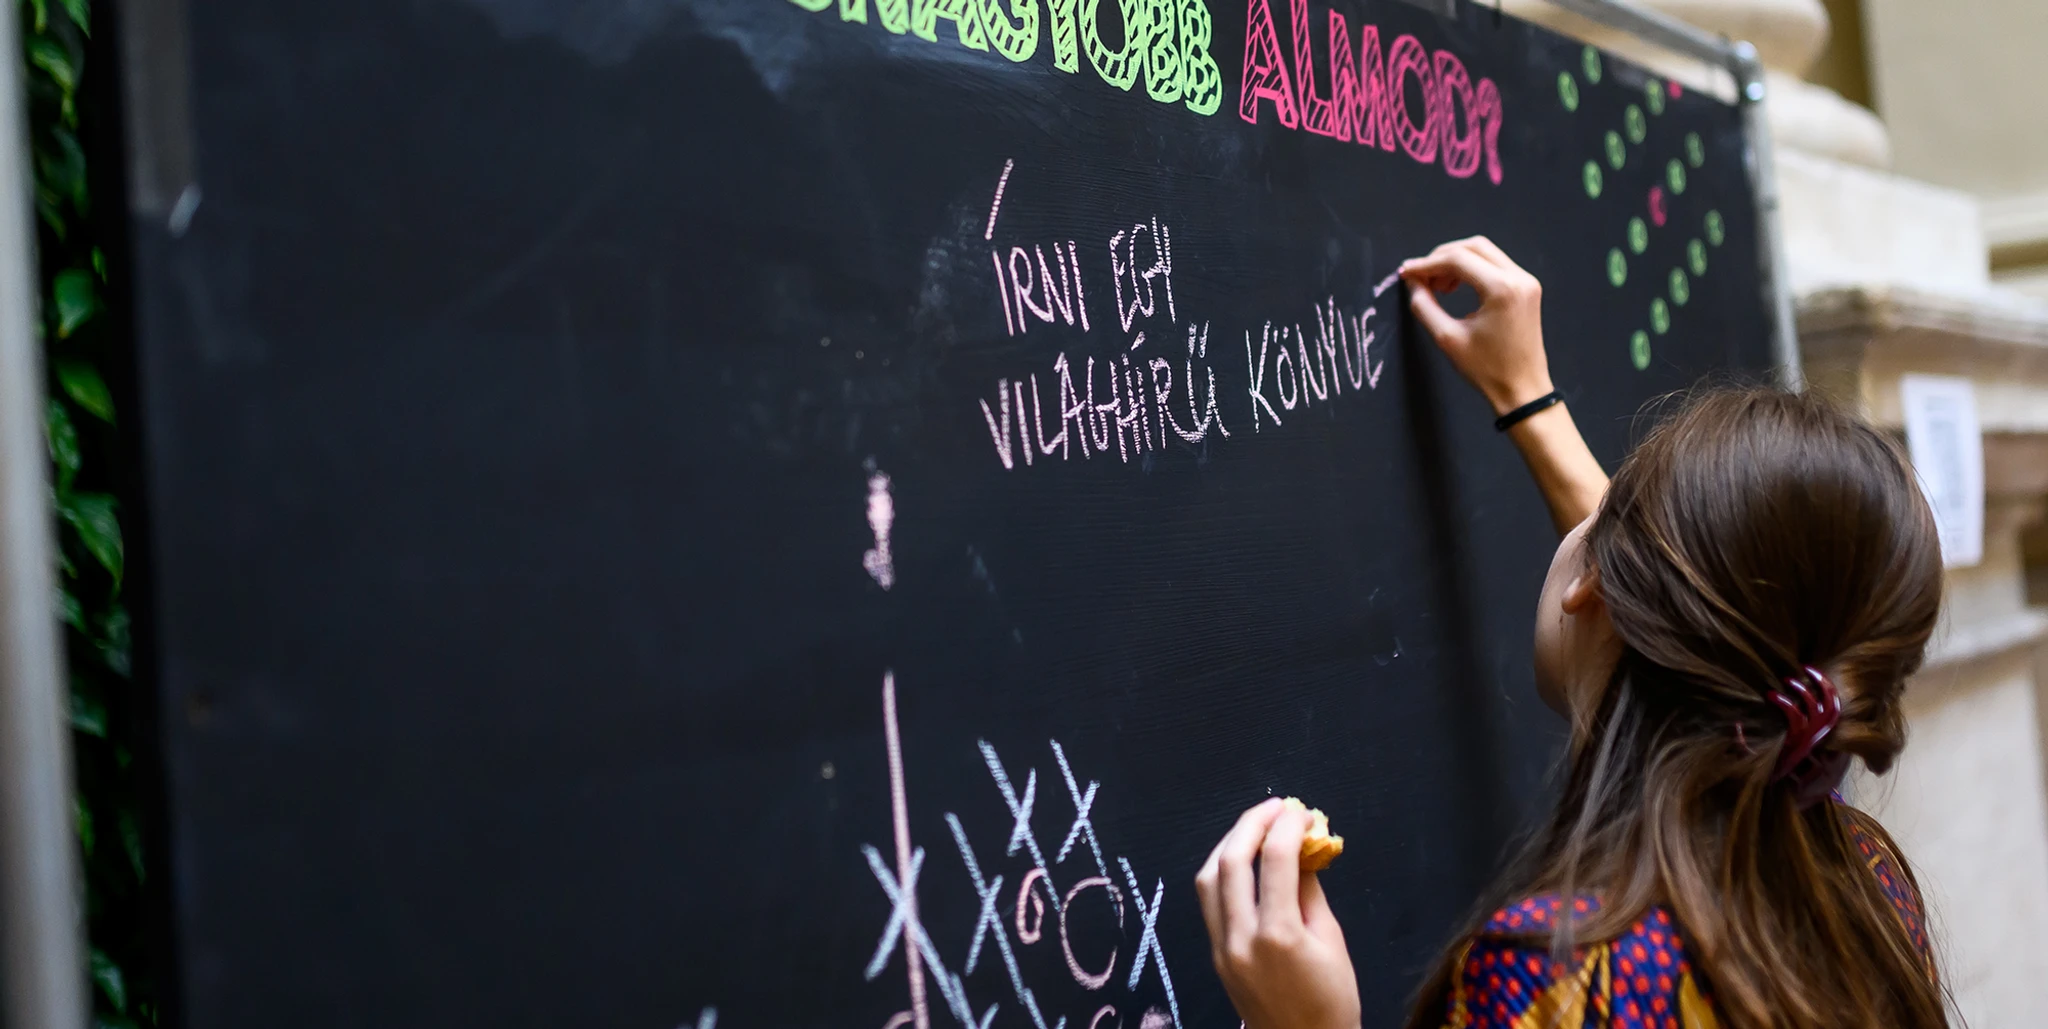 ÁLMOD?
ÍRNI EGY
VILÁGHÍRŰ KÖNYVE